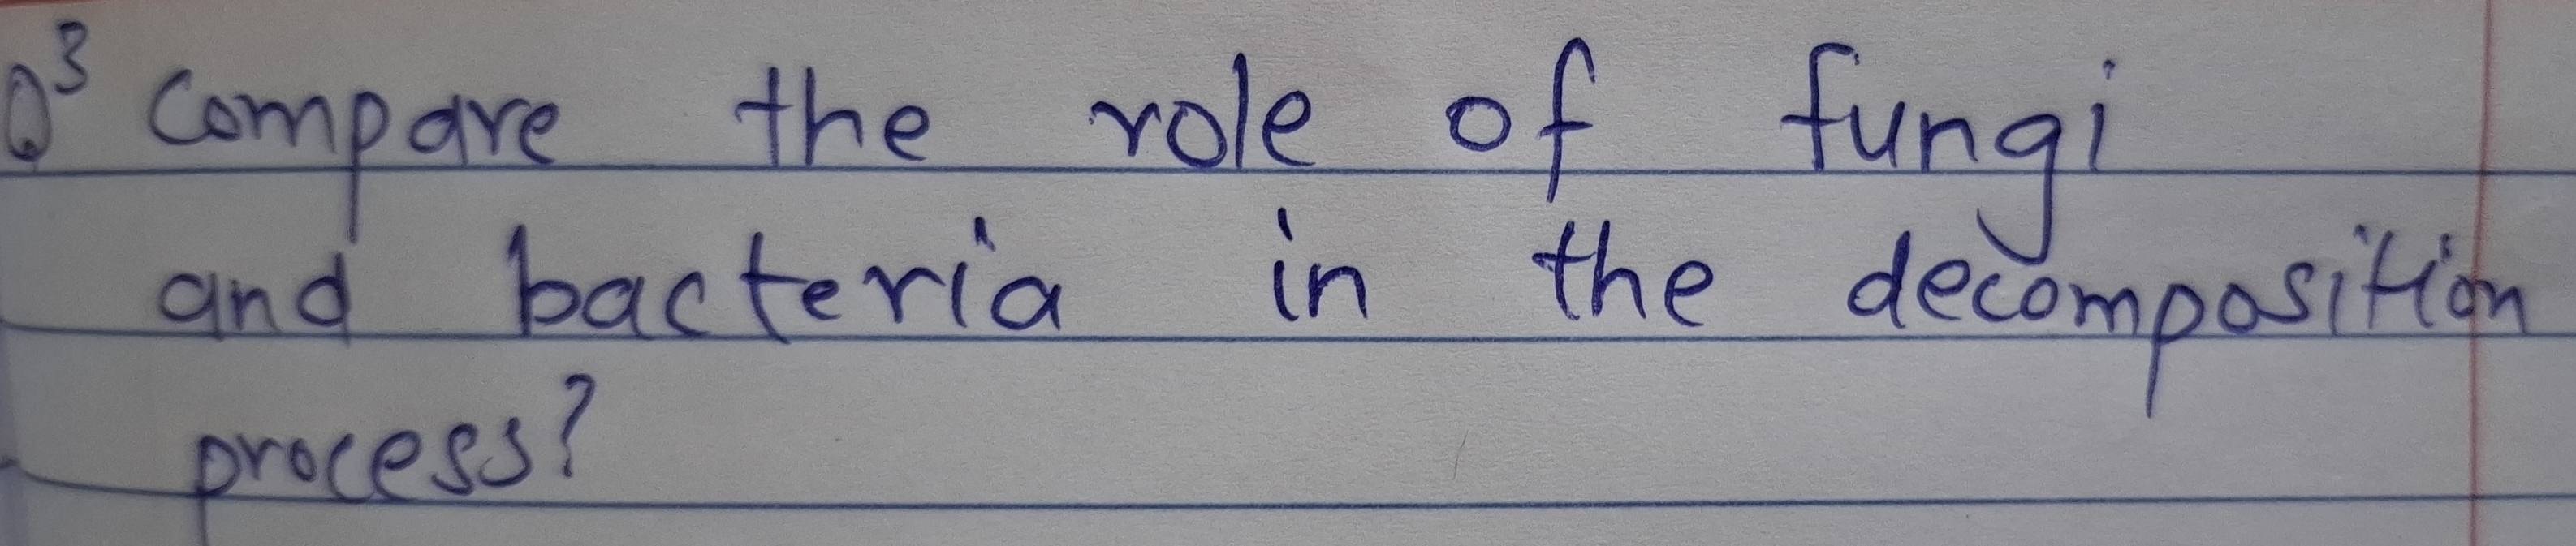 Q3 Compare the role of fungi
and bacteria in the decomposition
process?